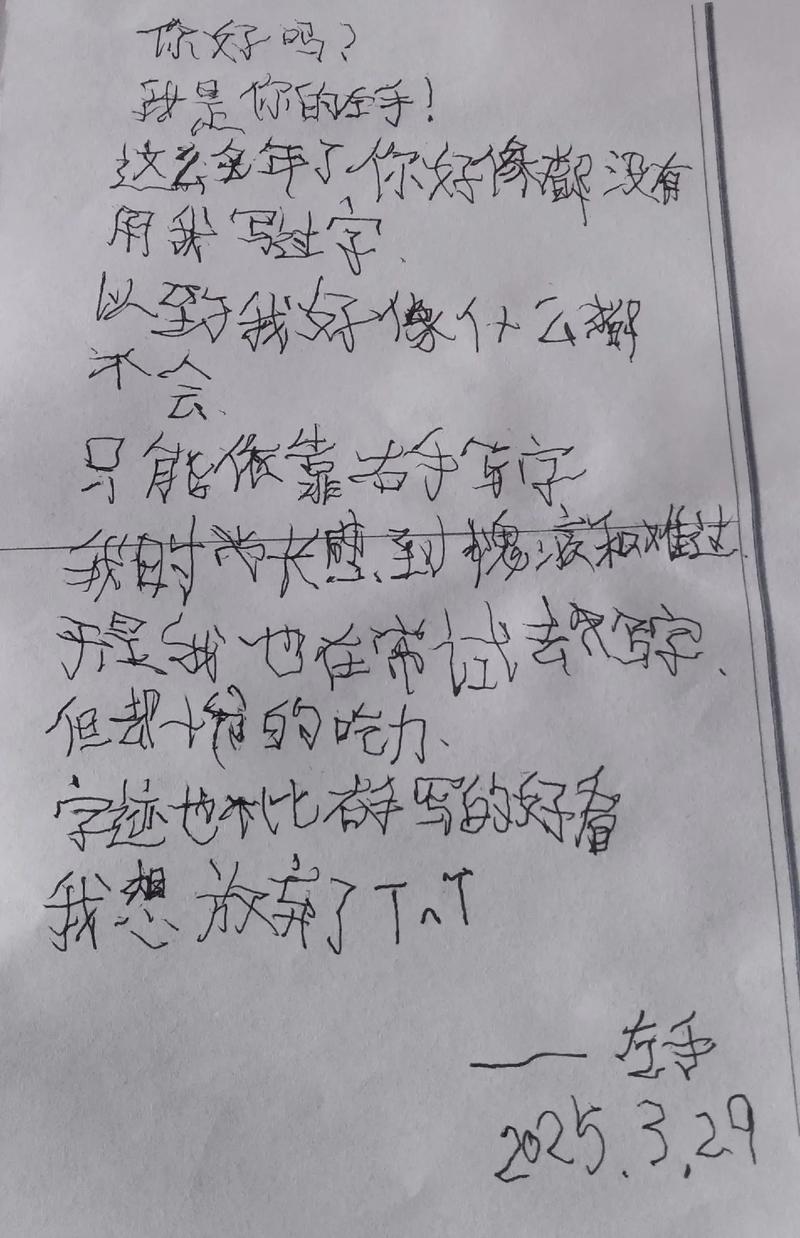 你好吗?
我是你的左手!
这么多年了你好像都没有
用我写过字.
以至于我好像什么都
不会.
只能依靠右手写字
我时常感到愧疚和难过.
于是我也在尝试去写字、
但却十分的吃力、
字迹也不比右手写的好看
我想放弃了T^T
—— 左手
2025.3.29